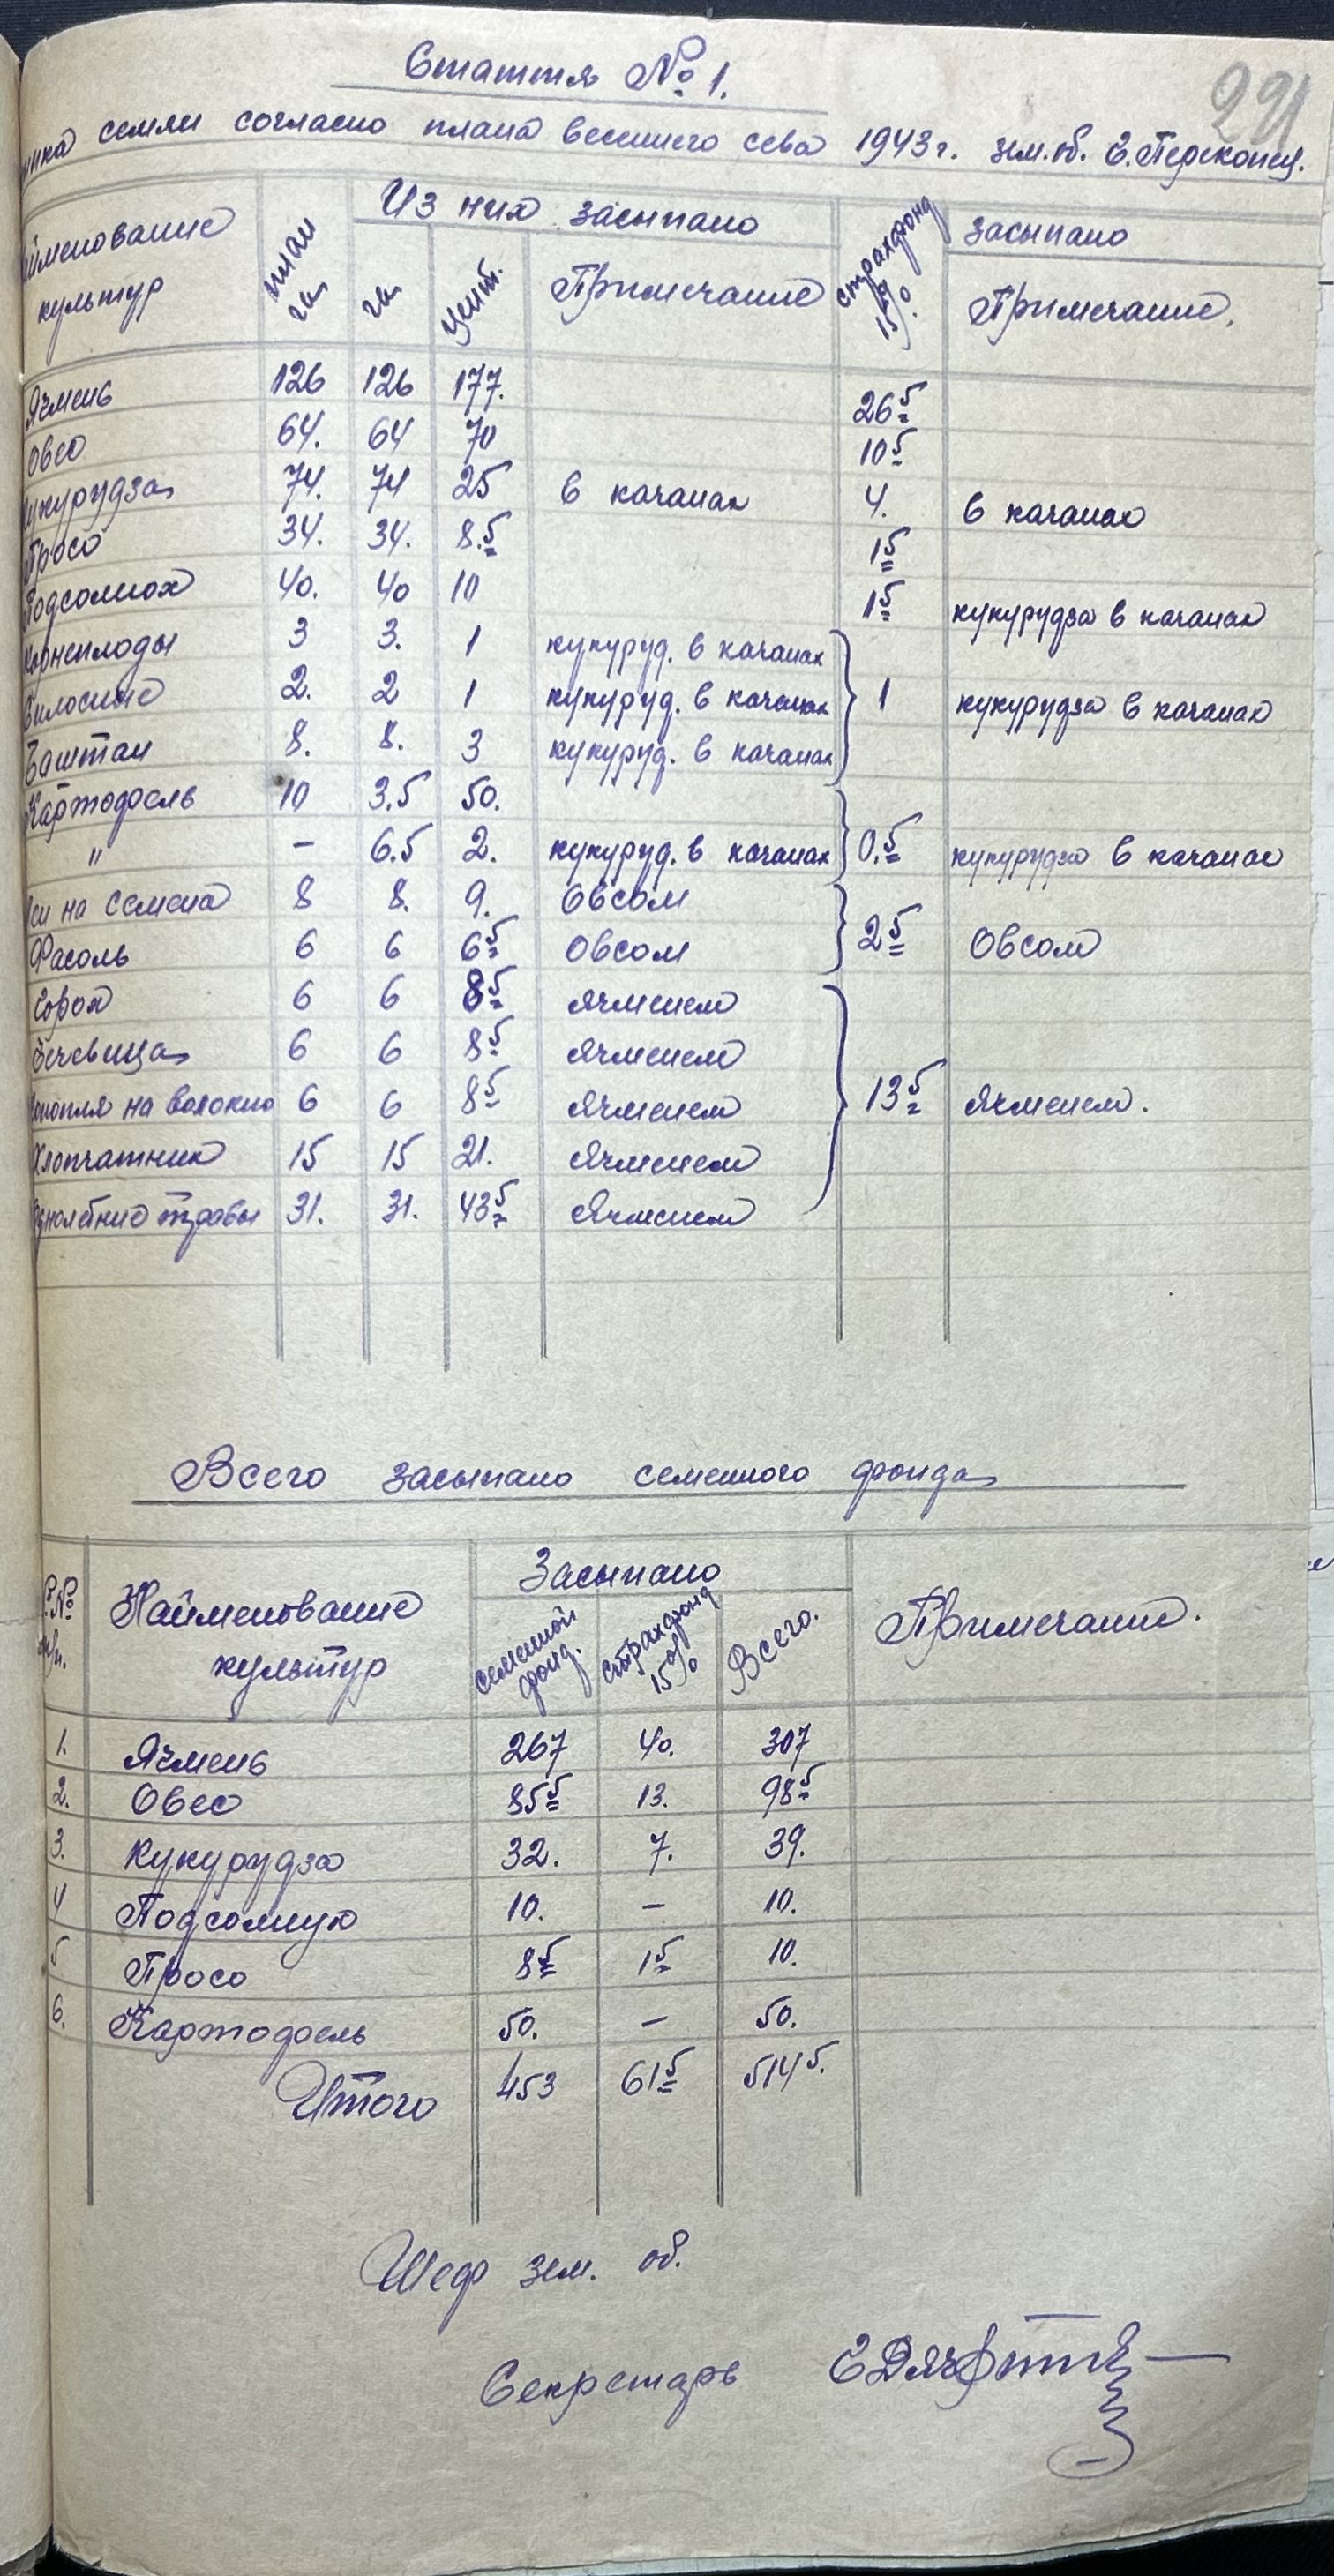 Стаття № 1.
221
семли согласно плана весеннего сева 1943 г. зем. об. с. Перекопец.
Из них засыпано
засыпано
йменование культур
план га
га
цент.
Примечание
страхфонд 15%
Примечание.
Ячмень 126 126 177. 26 5
Овес 64. 64 70 10 5
укурудза 74. 74 25 в качанах 4. в качанах
Просо 34. 34. 8.5 1 5
Подсолнох 40. 40 10 1 5 кукурудза в качанах
Корнеплоды 3 3. 1 кукуруд. в качанах
Силосные 2. 2 1 кукуруд. в качанах 1 кукурудза в качанах
Баштан 8. 8. 3 кукуруд. в качанах
Картофель 10 3.5 50.
" — 6.5 2. кукуруд. в качанах 0.5 кукурудза в качанах
на семена 8 8. 9. Овсом
Фасоль 6 6 6 5 Овсом 2 5 Овсом
Горох 6 6 8 5 Ячменем
Чечевица 6 6 8 5 Ячменем
онопля на волокно 6 6 8 5 Ячменем 13 5 Ячменем.
Хлопчатник 15 15 21. Ячменем
днолетние травы 31. 31. 43 5 Ячменем
Всего засыпано семенного фонда
№ п/п.
Найменование культур
Засыпано
семенной фонд.
страхфонд 15%
Всего.
Примечание.
1. Ячмень 267 40. 307
2. Овес 85 5 13. 98 5
3. Кукурудза 32. 7. 39.
4 Подсолнух 10. — 10.
5 Просо 8 5 1 5 10.
6. Картофель 50. — 50.
Итого 453 61 5 514 5.
Шеф зем. об.
Секретарь